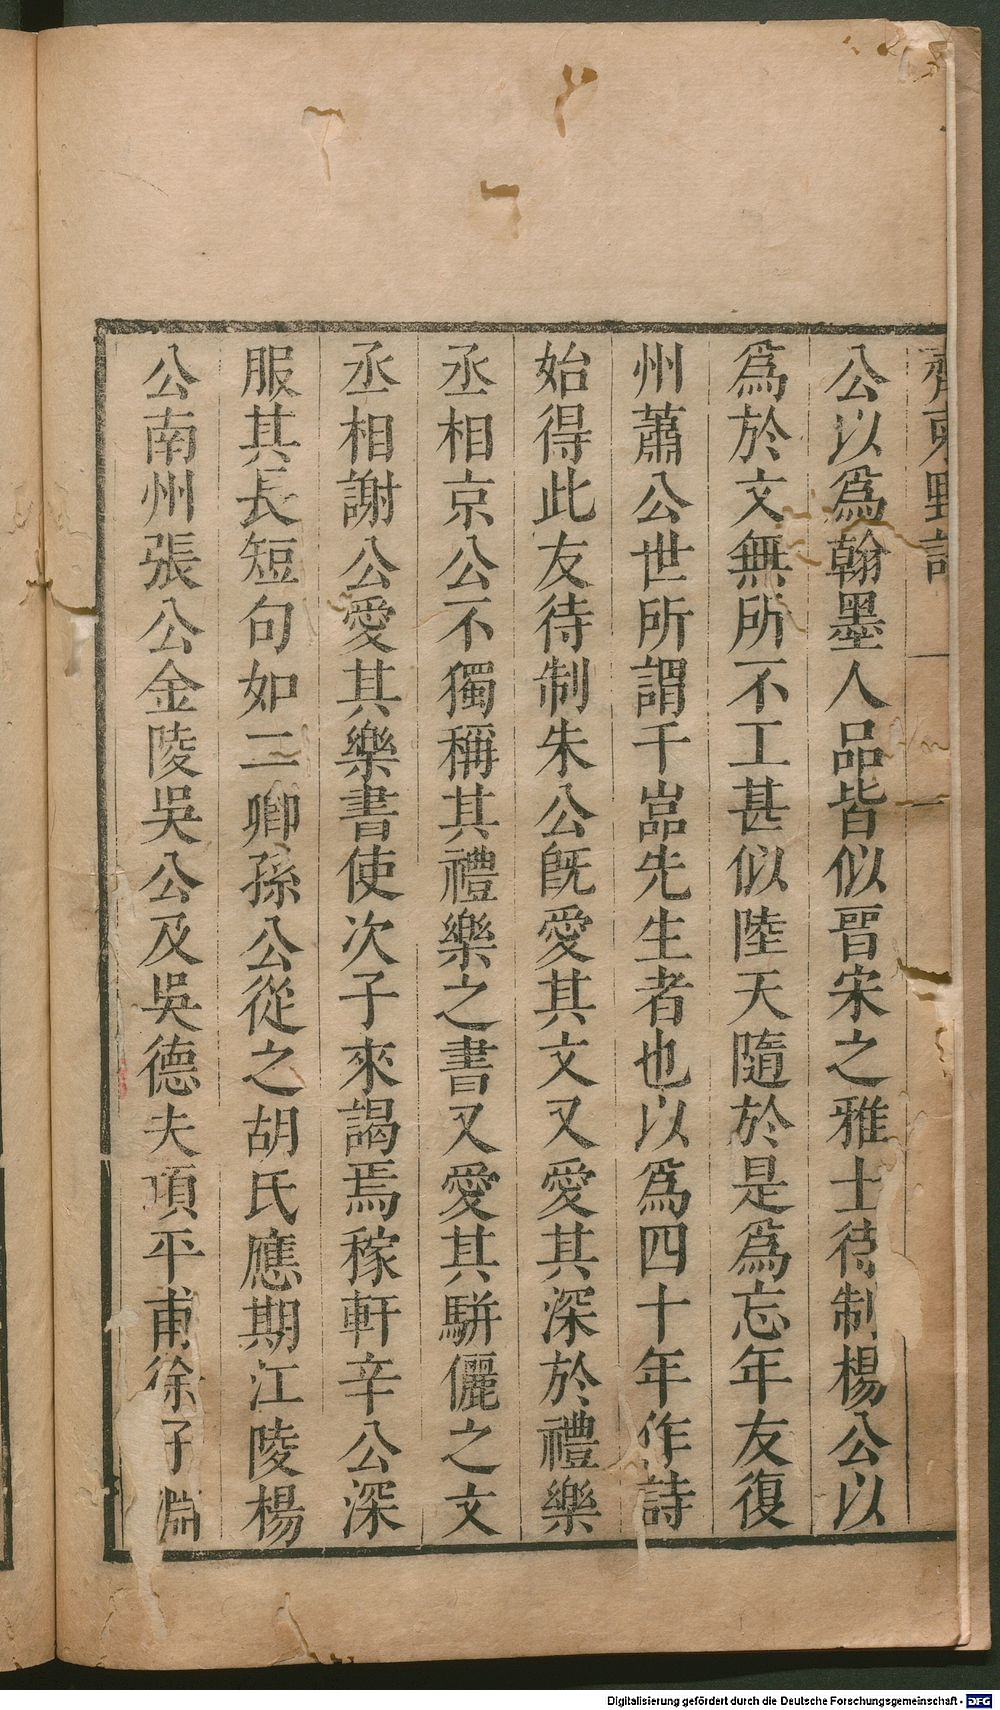 齊東野語
公以爲翰墨人品皆似晉宋之雅士待制楊公以
爲於文無所不工甚似陸天隨於是爲忘年友復
州蕭公世所謂千嵓先生者也以爲四十年作詩
始得此友待制朱公旣愛其文又愛其深於禮樂
丞相京公不獨稱其禮樂之書又愛其駢儷之文
丞相謝公愛其樂書使次子來謁焉稼軒辛公深
服其長短句如二卿孫公從之胡氏應期江陵楊
公南州張公金陵吳公及吳德夫項平甫徐子淵
Digitalisierung gefördert durch die Deutsche Forschungsgemeinschaft - DFG